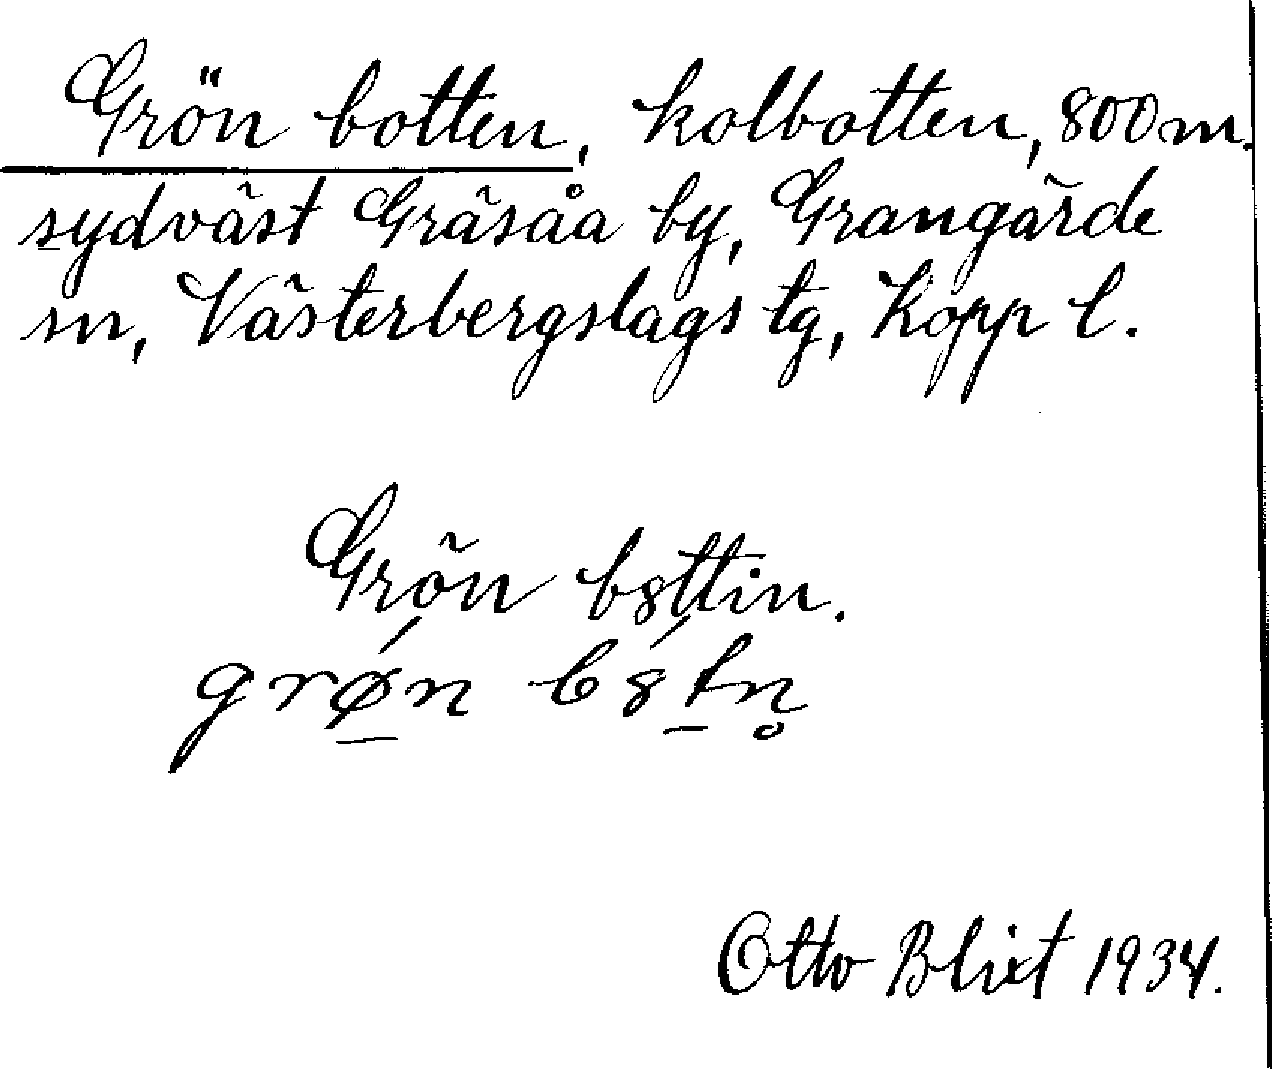 Grön botten, kolbotten, 800 m.
sydväst Gräsåa by, Grangärde
sn, Västerbergslags tg, Kopp l.
Grön b8ttin.
grǿ̲n b8́t̲n̥
Otto Blixt 1934.